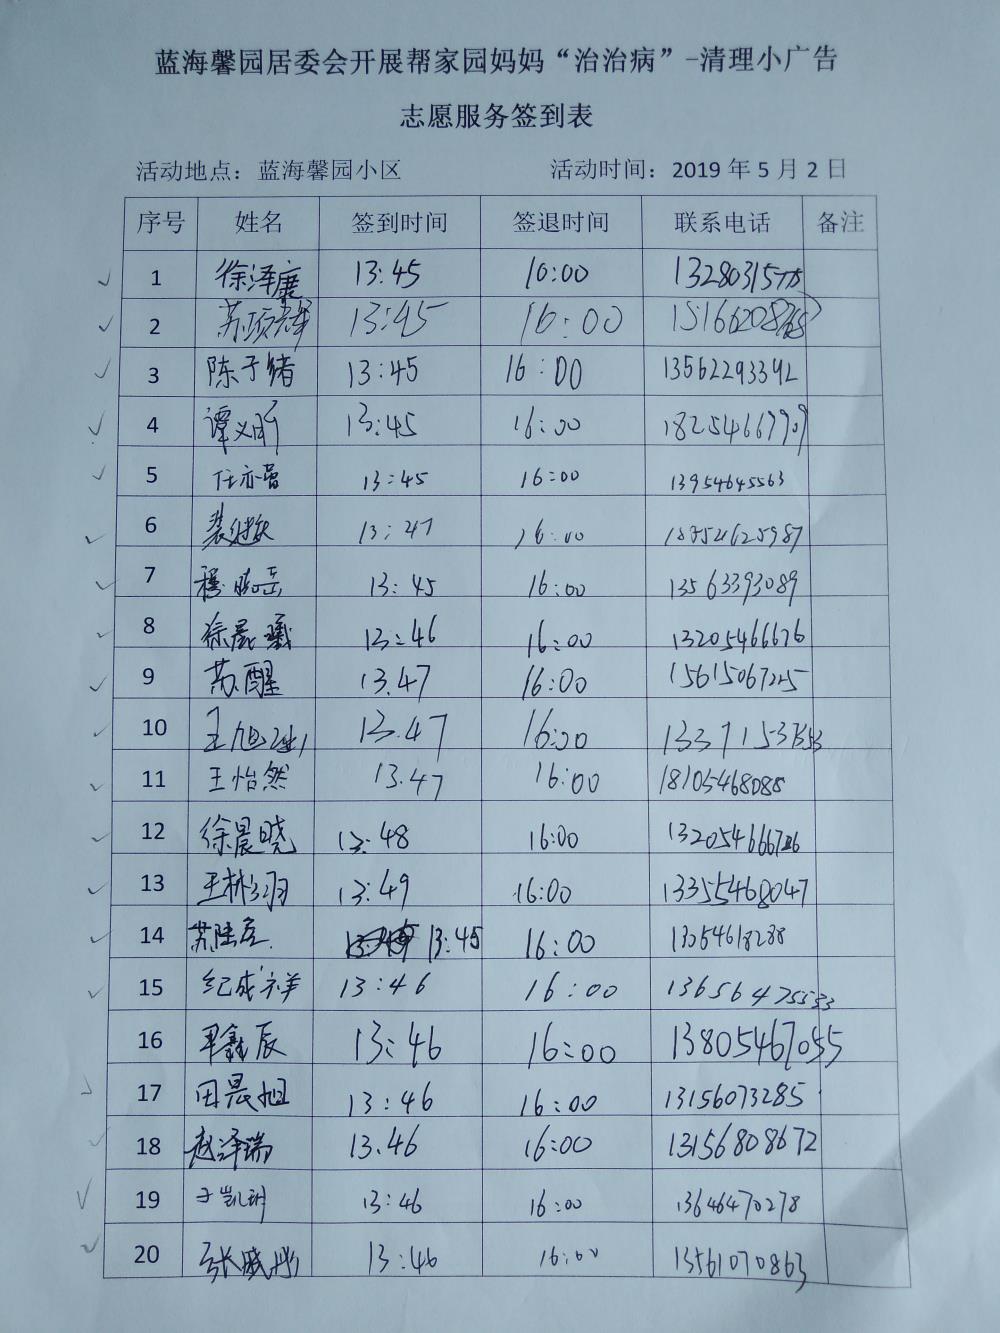 蓝海馨园居委会开展帮家园妈妈“治治病”-清理小广告
志愿服务签到表
活动地点：蓝海馨园小区 活动时间：2019 年 5 月 2 日
序号 姓名 签到时间 签退时间 联系电话 备注
1 徐泽康 13:45 10:00
2 13:45 16:00
3 陈子绪 13:45 16:00 13562293392
4 谭义昕 13:45 16:00 18254667909
5 任亦蕾 13:45 16:00 13954645563
6 13:47 16:00
7 穆晓岳 13:45 16:00 13563393089
8 徐晨曦 13:46 16:00 13205466676
9 苏醒 13.47 16:00 15615067245
10 王旭 13.47 16:00
11 王怡然 13.47 16:00 18105468088
12 徐晨晓 13:48 16:00
13 王林羽 13:49 16:00 13355468047
14 13:45 16:00 13054618288
15 纪成祥 13:46 16:00
16 鑫辰 13:46 16:00 13805467055
17 田晨旭 13:46 16:00 13156073285
18 赵泽瑞 13.46 16:00 13156808672
19 于凯玥 13:46 16:00 13646470278
20 张威彤 13:46 16:00 13561070863